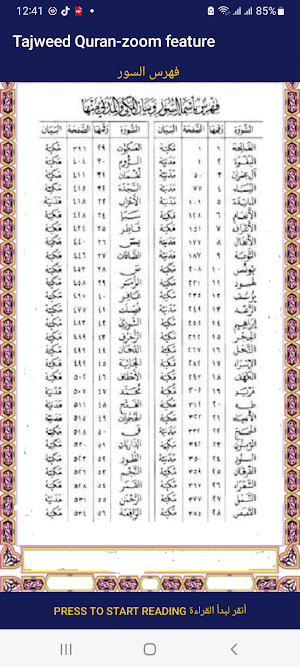 12:41 85%
Tajweed Quran-zoom feature
فهرس السور
فهرس بأسماء السور وبيان المكي والمدني منها
السورة رقمها الصفحة البيان السورة رقمها الصفحة البيان
الفاتحة ١ ١ مكية العنكبوت ٢٩ ٣٩٦ مكية
البقرة ٢ ٢ مدنية الروم ٣٠ ٤٠٤ مكية
آل عمران ٣ ٥٠ مدنية لقمان ٣١ ٤١١ مكية
النساء ٤ ٧٧ مدنية السجدة ٣٢ ٤١٥ مكية
المائدة ٥ ١٠٦ مدنية الأحزاب ٣٣ ٤١٨ مدنية
الأنعام ٦ ١٢٨ مكية سبأ ٣٤ ٤٢٨ مكية
الأعراف ٧ ١٥١ مكية فاطر ٣٥ ٤٣٤ مكية
الأنفال ٨ ١٧٧ مدنية يس ٣٦ ٤٤٠ مكية
التوبة ٩ ١٨٧ مدنية الصافات ٣٧ ٤٤٦ مكية
يونس ١٠ ٢٠٨ مكية ص ٣٨ ٤٥٣ مكية
هود ١١ ٢٢١ مكية الزمر ٣٩ ٤٥٨ مكية
يوسف ١٢ ٢٣٥ مكية غافر ٤٠ ٤٦٧ مكية
الرعد ١٣ ٢٤٩ مدنية فصلت ٤١ ٤٧٧ مكية
إبراهيم ١٤ ٢٥٥ مكية الشورى ٤٢ ٤٨٣ مكية
الحجر ١٥ ٢٦٢ مكية الزخرف ٤٣ ٤٨٩ مكية
النحل ١٦ ٢٦٧ مكية الدخان ٤٤ ٤٩٦ مكية
الإسراء ١٧ ٢٨٢ مكية الجاثية ٤٥ ٤٩٩ مكية
الكهف ١٨ ٢٩٣ مكية الأحقاف ٤٦ ٥٠٢ مكية
مريم ١٩ ٣٠٥ مكية محمد ٤٧ ٥٠٧ مدنية
طه ٢٠ ٣١٢ مكية الفتح ٤٨ ٥١١ مدنية
الأنبياء ٢١ ٣٢٢ مكية الحجرات ٤٩ ٥١٥ مدنية
الحج ٢٢ ٣٣٢ مدنية ق ٥٠ ٥١٨ مكية
المؤمنون ٢٣ ٣٤٢ مكية الذاريات ٥١ ٥٢٠ مكية
النور ٢٤ ٣٥٠ مدنية الطور ٥٢ ٥٢٣ مكية
الفرقان ٢٥ ٣٥٩ مكية النجم ٥٣ ٥٢٦ مكية
الشعراء ٢٦ ٣٦٧ مكية القمر ٥٤ ٥٢٨ مكية
النمل ٢٧ ٣٧٧ مكية الرحمن ٥٥ ٥٣١ مدنية
القصص ٢٨ ٣٨٥ مكية الواقعة ٥٦ ٥٣٤ مكية
PRESS TO START READING أنقر لبدأ القراءة